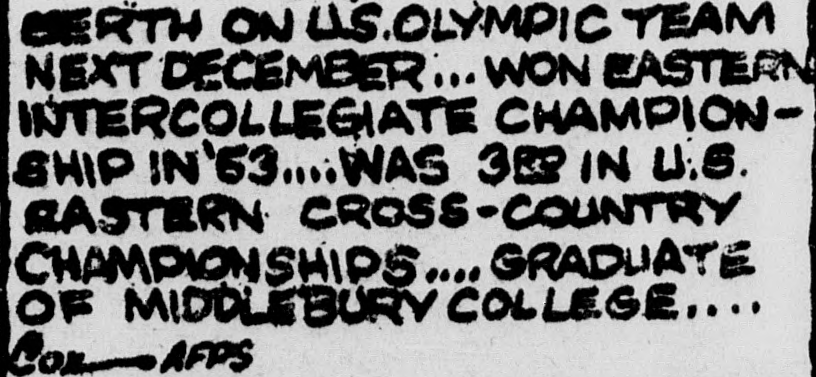 BERTH ON U.S. OLYMPIC TEAM
NEXT DECEMBER... WON EASTERN
INTERCOLLEGIATE CHAMPION-
SHIP IN '53.... WAS 3RD IN U.S.
EASTERN CROSS-COUNTRY
CHAMPIONSHIPS.... GRADUATE
OF MIDDLEBURY COLLEGE....
COX—AFPS